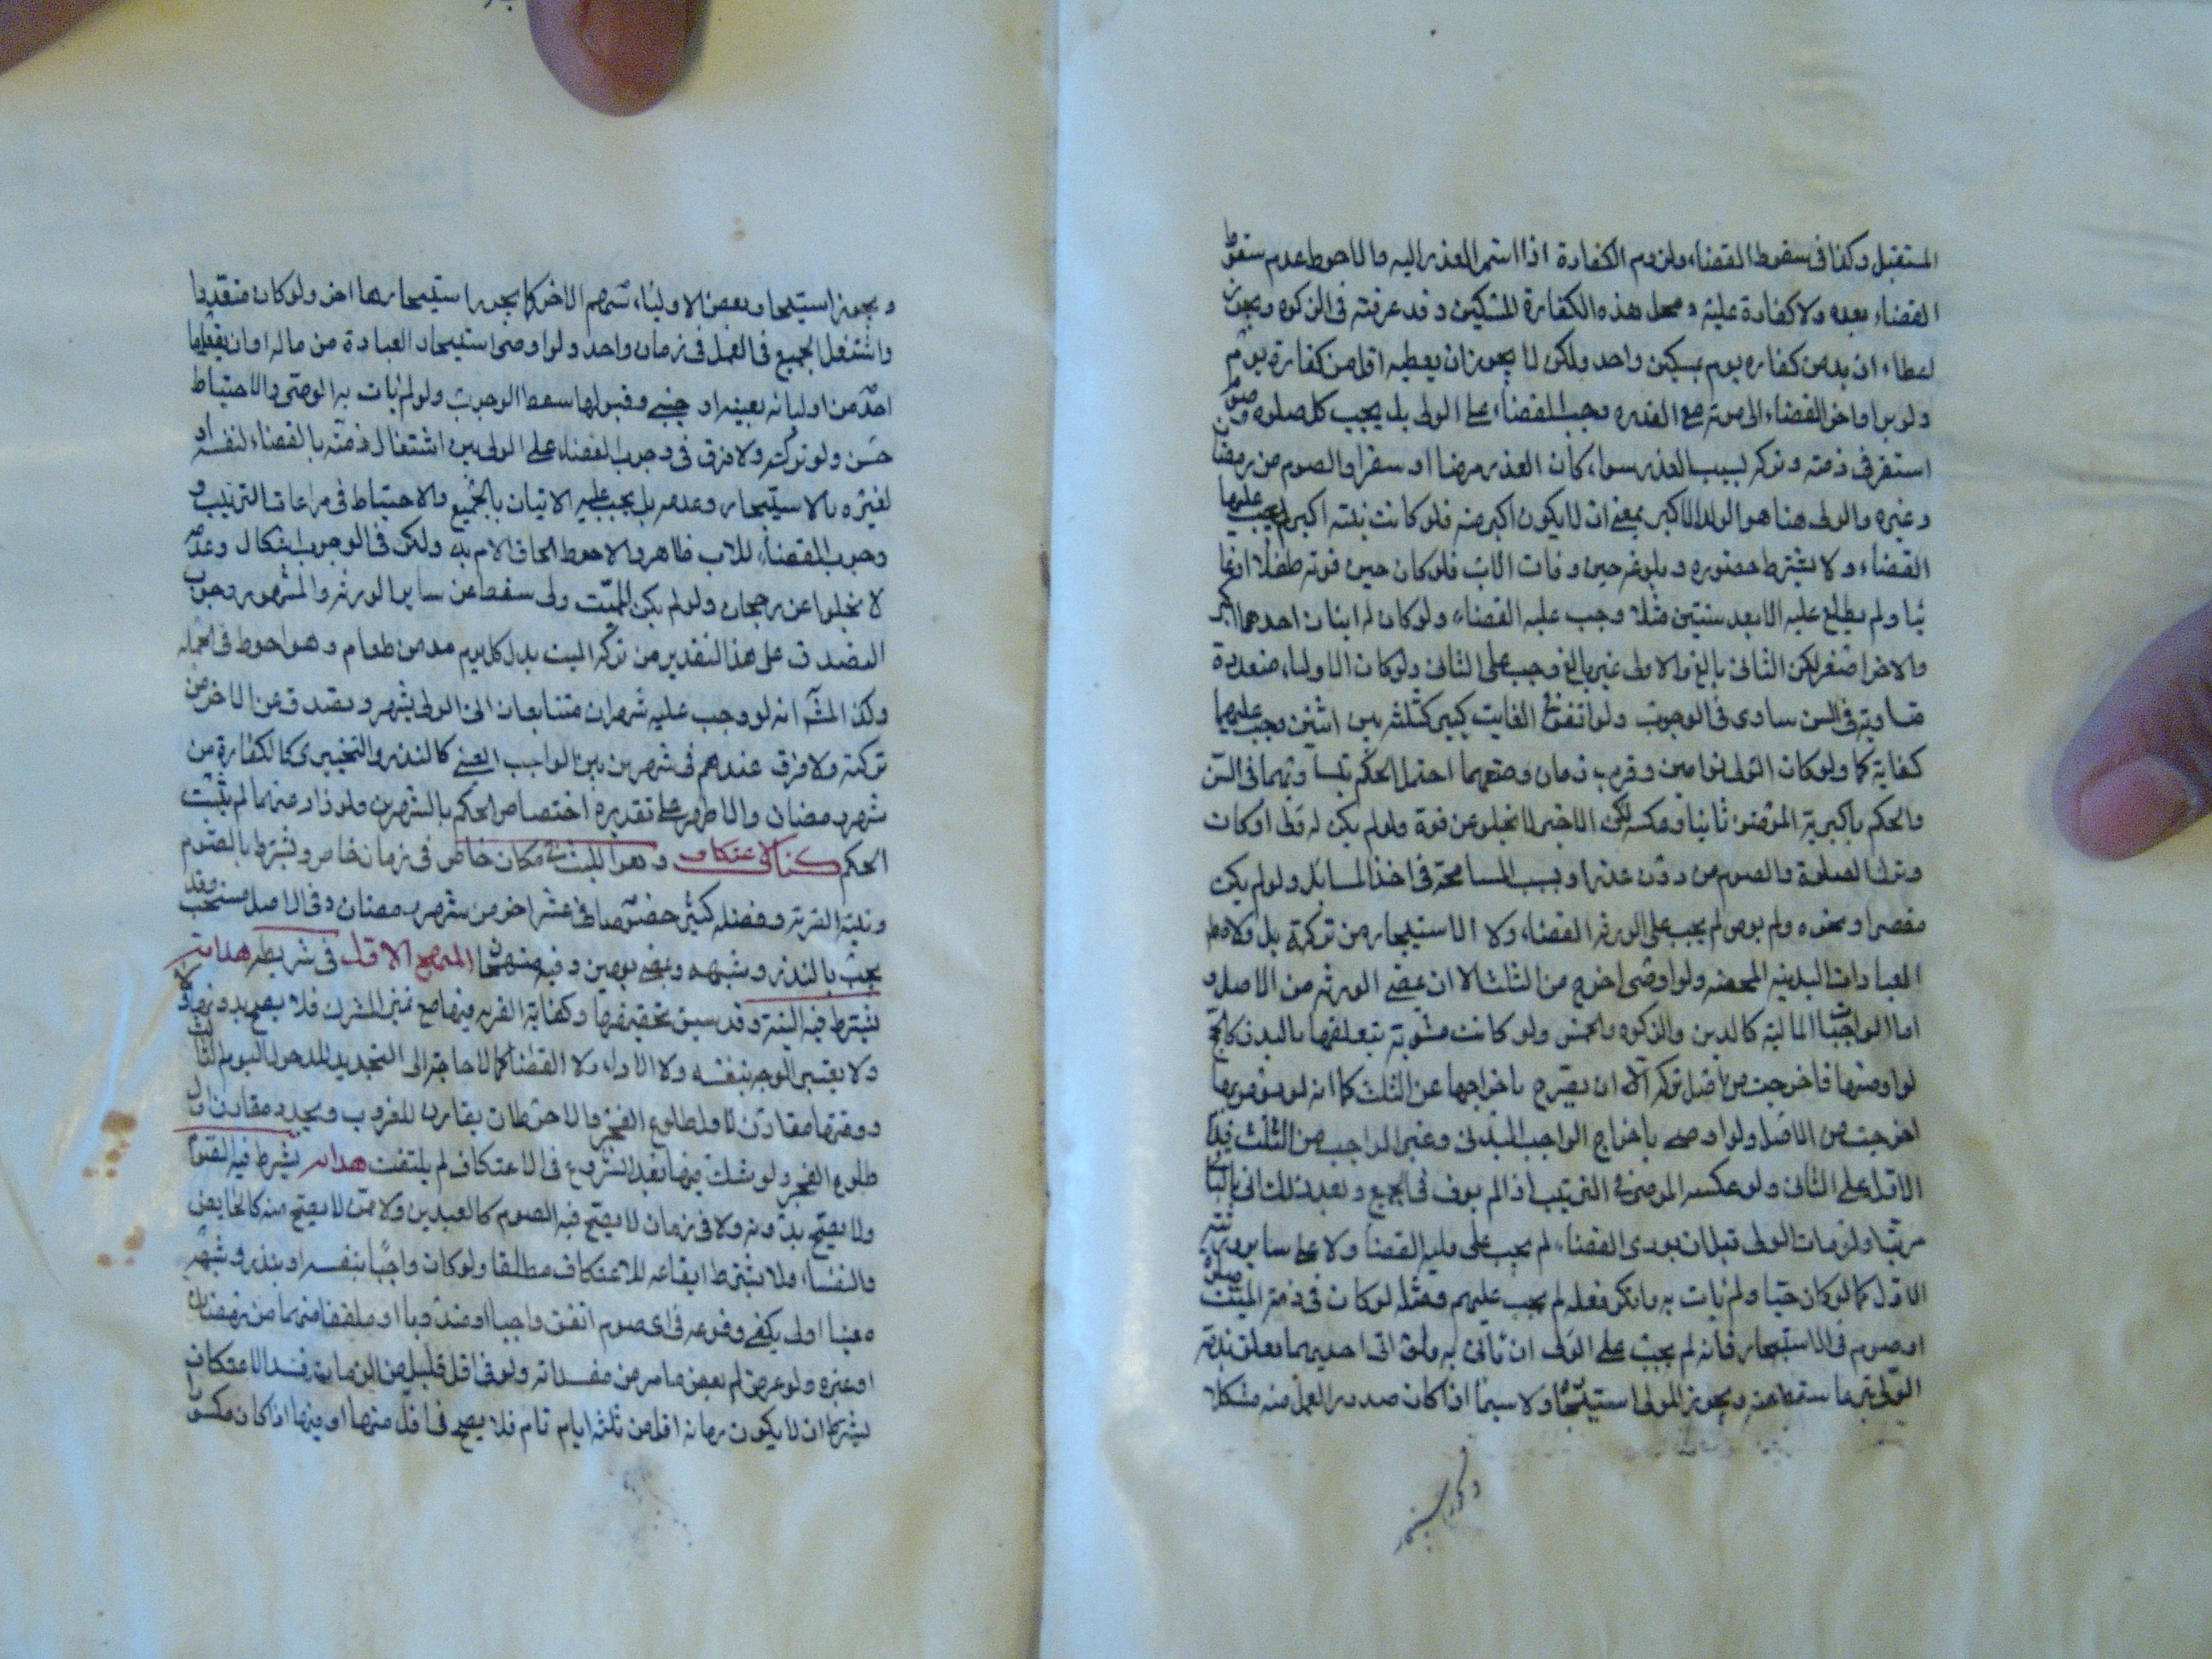 المستقبل وكذا فى سقوط القضاء ولزوم الكفارة اذا استمر العذر اليه والاحوط عدم سقوط
القضاء بعده ولا كفارة عليه ومحل هذه الكفارة المسكين وقد عرفته فى الزكوة ويجوز
اعطاء ازيد من كفاره يوم بمسكين واحد ولكن لا يجوز ان يعطيه اقل من كفارة يوم
ولو برا واخر القضاء الى موته مع القدره وجب القضاء على الولى بل يجب كل صلوة وصوم
استقر فى ذمته وتركه لسبب العذر سواء كان العذر مرضا او سفرا والصوم من رمضان
وغيره والولى هنا هو الولد الاكبر بمعنى ان لا يكون اكبر منه فلو كانت بنته اكبر لم يجب عليها
القضاء ولا يشترط حضوره وبلوغه حين وفات الاب فلو كان حين فوته طفلا او غا
ئبا ولم يطلع عليه الا بعد سنتين مثلا وجب عليه القضاء ولو كان له ابنان احدهما اكبر
والاخر اصغر لكن الثانى بالغ والاول غير بالغ وجب على الثانى ولو كان الاولياء متعددة
متساوية فى السن ساوى فى الوجوب ولو اتفق فى الفايت كسر كثلثه بين اثنين وجب عليهما
كفاية كما ولو كان الولى توامين وقرب زمان وضعهما احتمل الحكم بتساويهما فى السن
والحكم باكبرية الموضوع ثانيا وعكسه لكن الاخير لا يخلو عن قوة ولو لم يكن له ولى او كان
وترك الصلوة والصوم من دون عذر او بسبب المسامحة فى اخذ المسائل ولو لم يكن
مقصرا ونحوه ولم يوص لم يجب على الورثه القضاء ولا الاستيجار من تركته بل ولا دفع
العبادات البدنية المحضه ولو اوصى اخرج من الثلث الا ان يمضى الورثه من الاصل و
اما الواجبات المالية كالدين والزكوة والخمس ولو كانت مشوبة بتعلقها بالبدن كالحج
لو اوصى بها فاخرجت من اصل تركه الا ان يصرح باخراجها عن الثلث كما انه لو لم يوص بها
اخرجت من الاصل ولو اوصى باخراج الواجب البدنى وغير الواجب من الثلث قدم
الاول على الثانى ولو عكسه الموصى فى الترتيب اذا لم يوف فى الجميع وبعد ذلك اتى بالباقى
مرتبا ولو مات الولى قبل ان يودى القضاء لم يجب على وليه القضا ولا على ساير ورثته
الاول كما لو كان حيا ولم يات به وامكن فعله لم يجب عليهم ومثله لو كان فى ذمة الميت صلوة
او صوم فى الاستيجار فانه لم يجب على الولى ان ياتى به ولو اتى احديهما تعلق بذمة
الولى تبرعا سقط عنه ويجوز للولى استيجار ولا سيما اذا كان صدور العمل منه مشكلا
ويجوز استيجار بعض الاولياء سهم الاخر كما يجوز استيجارها اخر ولو كان متعددا
واشتغل الجميع فى العمل فى زمان واحد ولو اوصى استيجار العبادة من ماله او ان يفعلها
احد من اوليائه بعينه او اجنبى وقبولها سقط الوجوب ولو لم يات به الوصى والاحتياط
حسن ولو تركته ولا فرق فى وجوب القضاء على الولى بين اشتغال ذمته بالقضاء لنفسه او
لغيره بالاستيجار وعدمه بل يجب عليه الاتيان بالجميع والاحتياط فى مراعات الترتيب و
وجوب القضاء للاب ظاهر والاحوط الحاق الام به ولكن فى الوجوب اشكال وعدمه
لا يخلوا عن رجحان ولو لم يكن للميت ولى سقط عن ساير الورثه والمشهور وجوب
التصدق على هذا التقدير من تركه الميت بدل كل يوم مد من طعام وهو احوط فى الجمله
ولكن المشهور انه لو وجب عليه شهران متتابعان اتى الولى بشهر وتصدق عن الاخر من
تركته ولا فرق عندهم فى شهرين بين الواجب العينى كالنذر والتخييرى كالكفارة من
شهر رمضان والاظهر على تقديره اختصاص الحكم بالشهرين ولو زاد عنهما لم يثبت
الحكم كتاب الاعتكاف وهو اللبث فى مكان خاص فى زمان خاص ويشترط بالصوم
ونية القربة وفضله كثير خصوصا فى عشر اخر من شهر رمضان وفى الاصل مستحب وقد
يجب بالنذر وشبهه وبمضى يومين وفيه منهجان المنهج الاول فى شريطه هداية
يشترط فيه النية وقد سبق تحقيقها وكفاية القربة فيها مع تميز المشترك فلا يصح بدونها و
ولا يعتبر الوجه بنفسه ولا الاداء ولا القضاء كما لا حاجة الى التجديد للدخول اليوم الثالث
ووقتها مقارن لاول طلوع الفجر والاحوط ان يقارن للغروب ويجدد مقارن اول
طلوع الفجر ولو شك فيها بعد الشروع فى الاعتكاف لم يلتفت هداية يشترط فيه الصوم
ولا يصح بدونه ولا فى زمان لا يصح فيه الصوم كالعيدين ولا ممن لا يصح منه كالحايض
والنفساء ولا يشترط ايقاعه للاعتكاف مطلقا ولو كان واجبا بنفسه او بنذر وشبهه
معينا اولى يكفى وقوعه فى اى صوم اتفق واجبا او مندوبا او ملفقا منهما من رمضان
او غيره ولو عرض له بعض ما مر من مفسداته ولو فى اقل قليل من الزمان فسد الاعتكاف
يشترط ان لا يكون زمانه اقل من ثلثه ايام تام فلا يصح فى اقل منها او منها اذا كان مكسورا